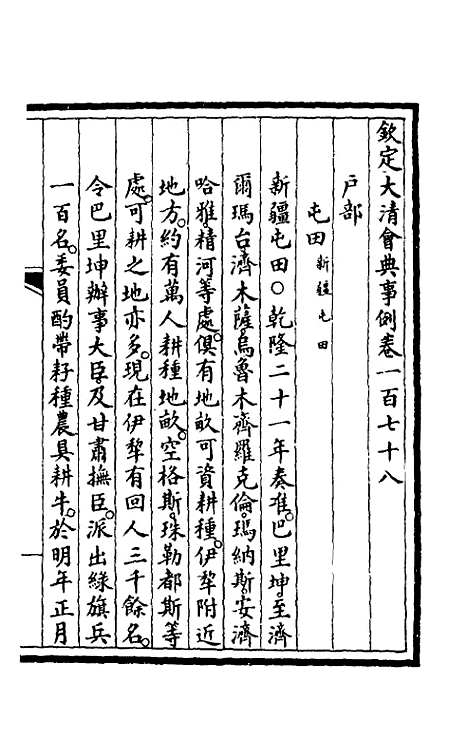 欽定大清會典事例卷一百七十八
戶部
屯田新疆屯田
新疆屯田○乾隆二十一年奏准。巴里坤至濟
爾瑪台。濟木薩。烏魯木齊。羅克倫。瑪納斯。安濟
哈雅。精河等處。俱有地畝可資耕種。伊犂附近
地方。約有萬人耕種地畝。空格斯。珠勒都斯等
處。可耕之地亦多。現在伊犂有回人三千餘名。
令巴里坤辦事大臣。及甘肅撫臣。派出綠旗兵
一百名。委員酌帶籽種農具耕牛。於明年正月